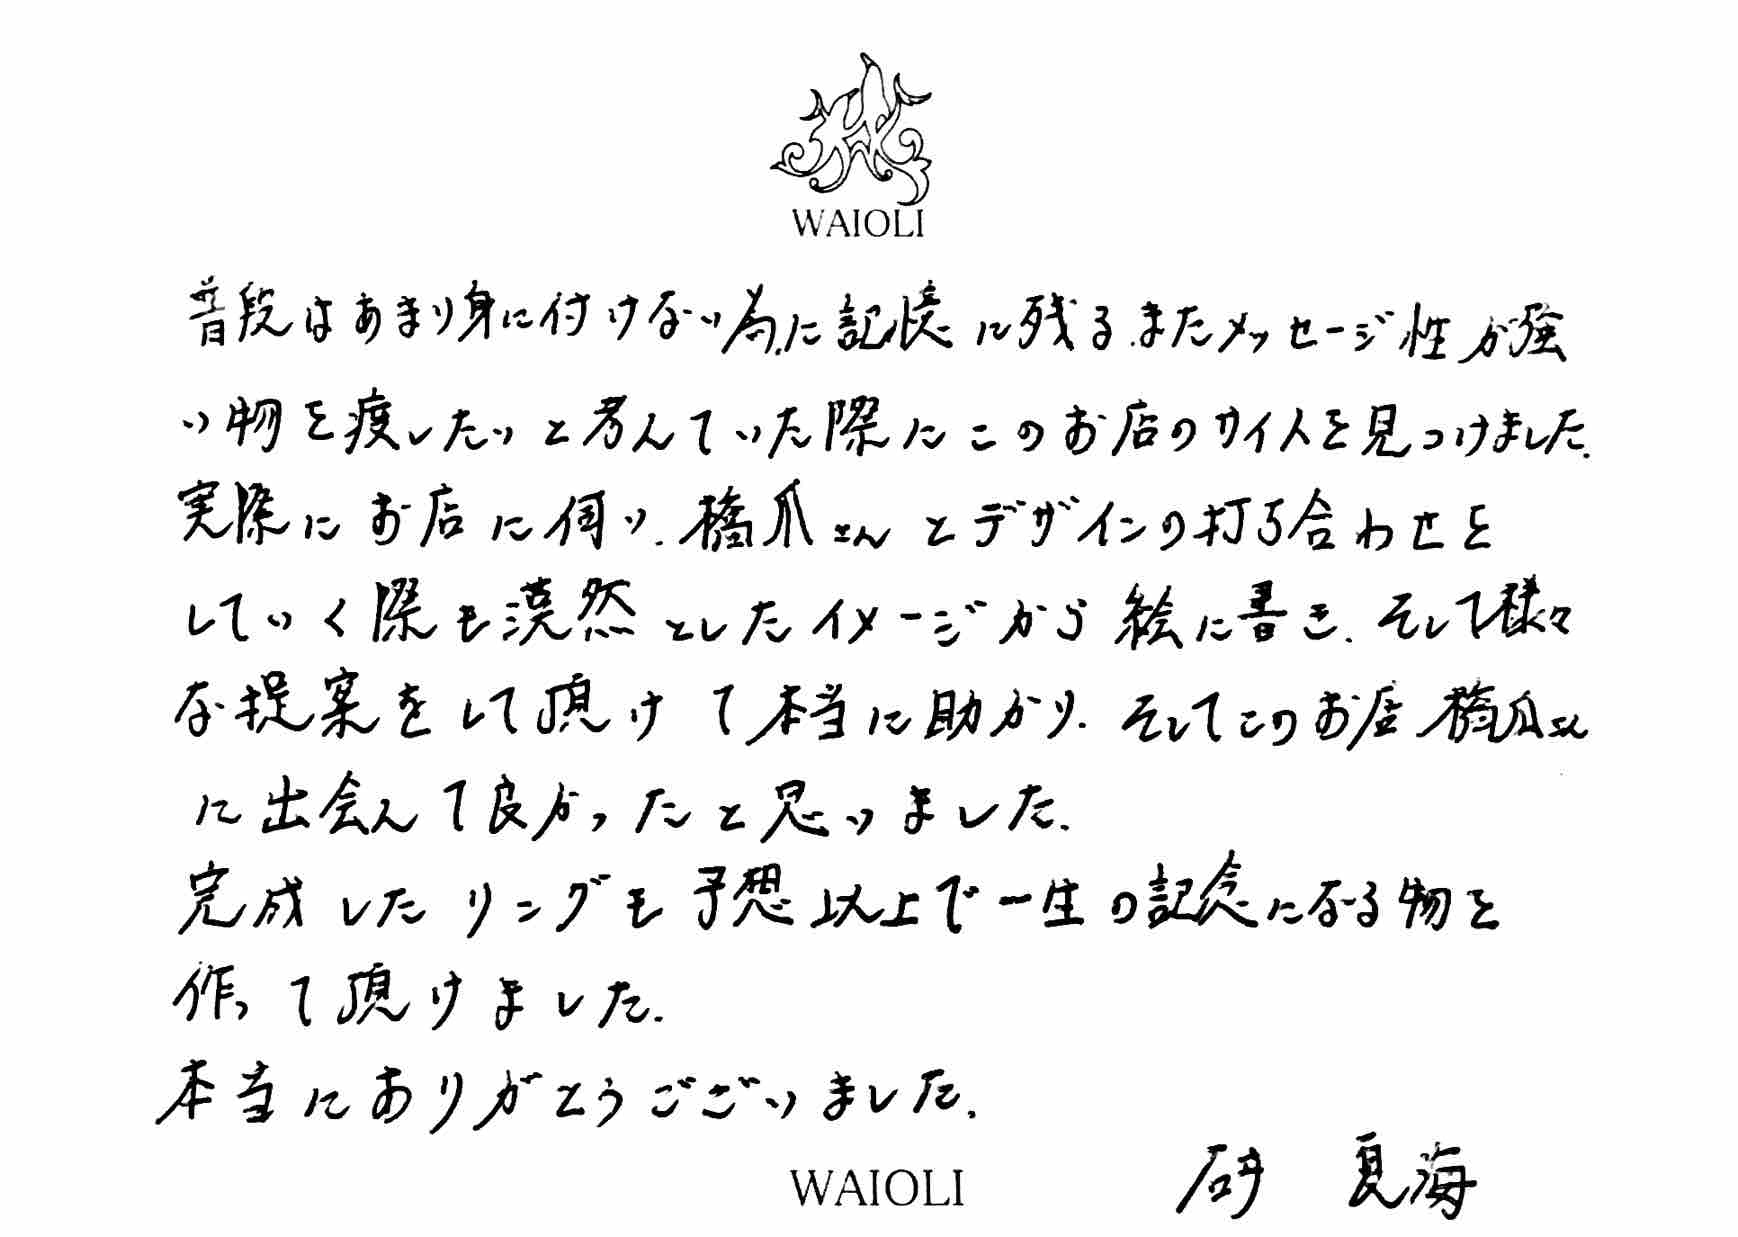 WAIOLI
普段はあまり身に付けない為に記憶に残る.またメッセージ性が強
い物を渡したいと考えていた際にこのお店のサイトを見つけました.
実際にお店に伺い.橋爪さんとデザインの打ち合わせを
していく際も漠然としたイメージから絵に書き.そして様々
な提案をして頂けて本当に助かり.そしてこのお店橋爪さん
に出会えて良かったと思いました.
完成したリングも予想以上で一生の記念になる物を
作って頂けました.
本当にありがとうございました.
WAIOLI
夏海